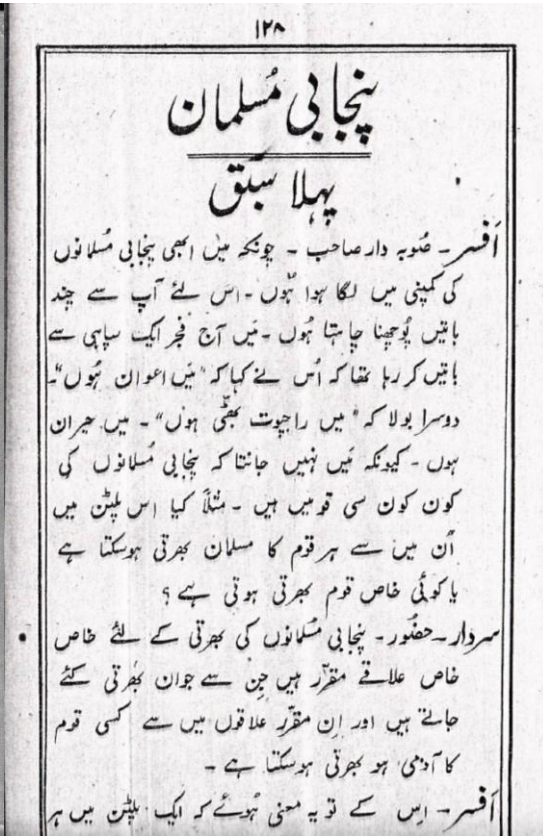 ۱۲۸
پنجابی مُسلمان
پہلا سبَق
اَفسر ۔ صُوبہ دار صاحب ۔ چونکہ میں ابھی پنجابی مُسلمانوں
کی کمپنی میں لگا ہوا ہُوں ۔ اس لئے آپ سے چند
باتیں پُوچھنا چاہتا ہُوں ۔ مَیں آج فجر ایک سپاہی سے
باتیں کر رہا تھا کہ اُس نے کہا کہ "مَیں اعوان ہُوں"۔
دوسرا بولا کہ "میں راجپوت بھٹّی ہوں" ۔ میں حیران
ہوں ۔ کیونکہ مَیں نہیں جانتا کہ پنجابی مُسلمانوں کی
کون کون سی قومیں ہیں ۔ مثلاً کیا اس پلٹن میں
اُن میں سے ہر قوم کا مسلمان بھرتی ہوسکتا ہے
یا کوئی خاص قوم بھرتی ہوتی ہے ؟
سردار ۔ حضُور ۔ پنجابی مُسلمانوں کی بھرتی کے لئے خاص
خاص علاقے مقرّر ہیں جِن سے جوان بھرتی کئے
جاتے ہیں اور اِن مقرّر علاقوں میں سے کسی قوم
کا آدمی ہو بھرتی ہوسکتا ہے ۔
اَفسر ۔ اِس کے تو یہ معنی ہُوئے کہ ایک پلٹن میں ہر